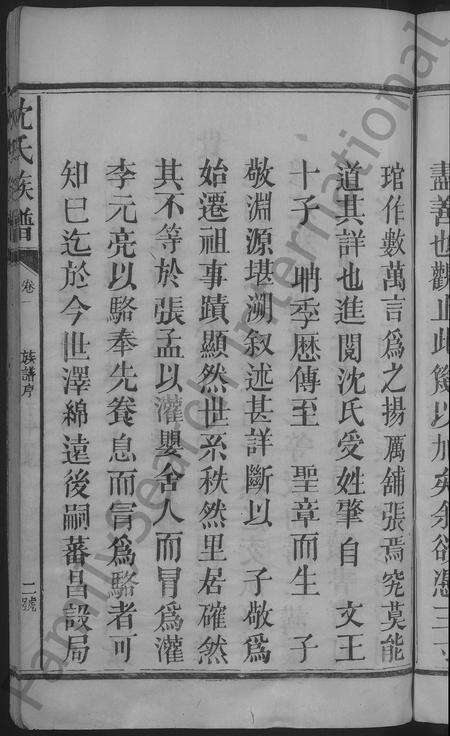 盡善也觀止此蔑以加矣余欲憑三寸
琯作數萬言爲之揚厲舖張焉究莫能
道其詳也進閱沈氏受姓肇自 文王
十子 聃季歷傳至 聖章而生 子
敬淵源堪溯叙述甚詳斷以 子敬爲
始遷祖事蹟顯然世系秩然里居確然
其不等於張孟以灌嬰舍人而冒爲灌
李元亮以駱奉先養息而冐爲駱者可
知巳迄於今世澤綿遠後嗣蕃昌設局
沈氏族譜
卷一
族譜序
二號
FamilySearch International